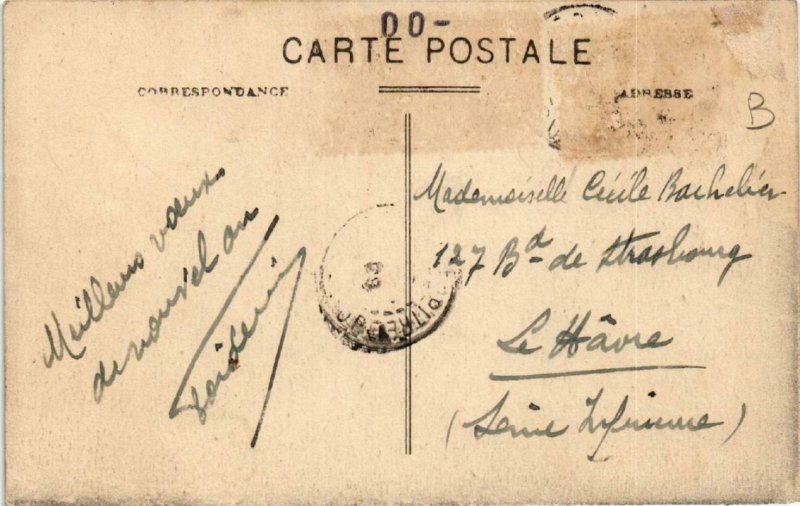 00-
CARTE POSTALE
CORRESPONDANCE
ADRESSE
B
Meilleurs vœux
de nouvel an
Mademoiselle Cécile Bachelier
127 Bd de Strasbourg
Le Hâvre
(Seine Inférieure)